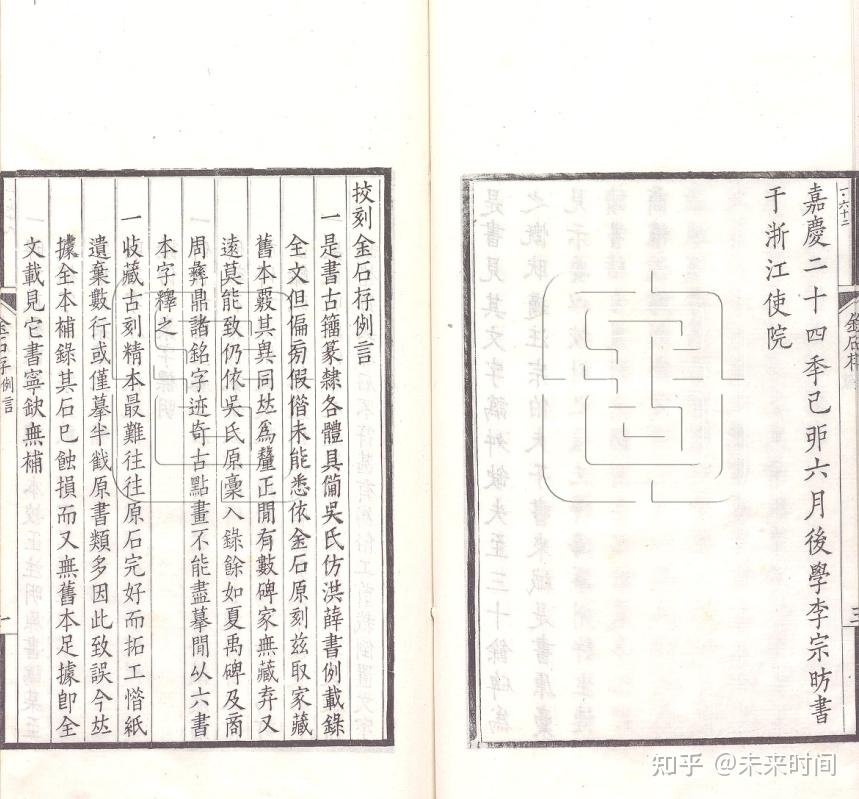 嘉慶二十四季己丣六月後學李宗昉書
于浙江使院
一·六十二
三
挍刻金石存例言
一是書古籒篆隸各體具備吳氏仿洪薛書例載錄
全文但偏旁假借未能悉依金石原刻兹取家藏
舊本覈其異同𠀤爲釐正閒有數碑家無藏弆又
遠莫能致仍依吳氏原稾入錄餘如夏禹碑及商
周彝鼎諸銘字迹奇古點畫不能盡摹閒㠯六書
本字釋之
一收藏古刻精本最難往往原石完好而拓工惜紙
遺棄數行或僅摹半截原書類多因此致誤今𠀤
據全本補錄其石已蝕損而又無舊本足據卽全
文載見它書寧缺無補
金石存例言
一
知乎 @未来时间